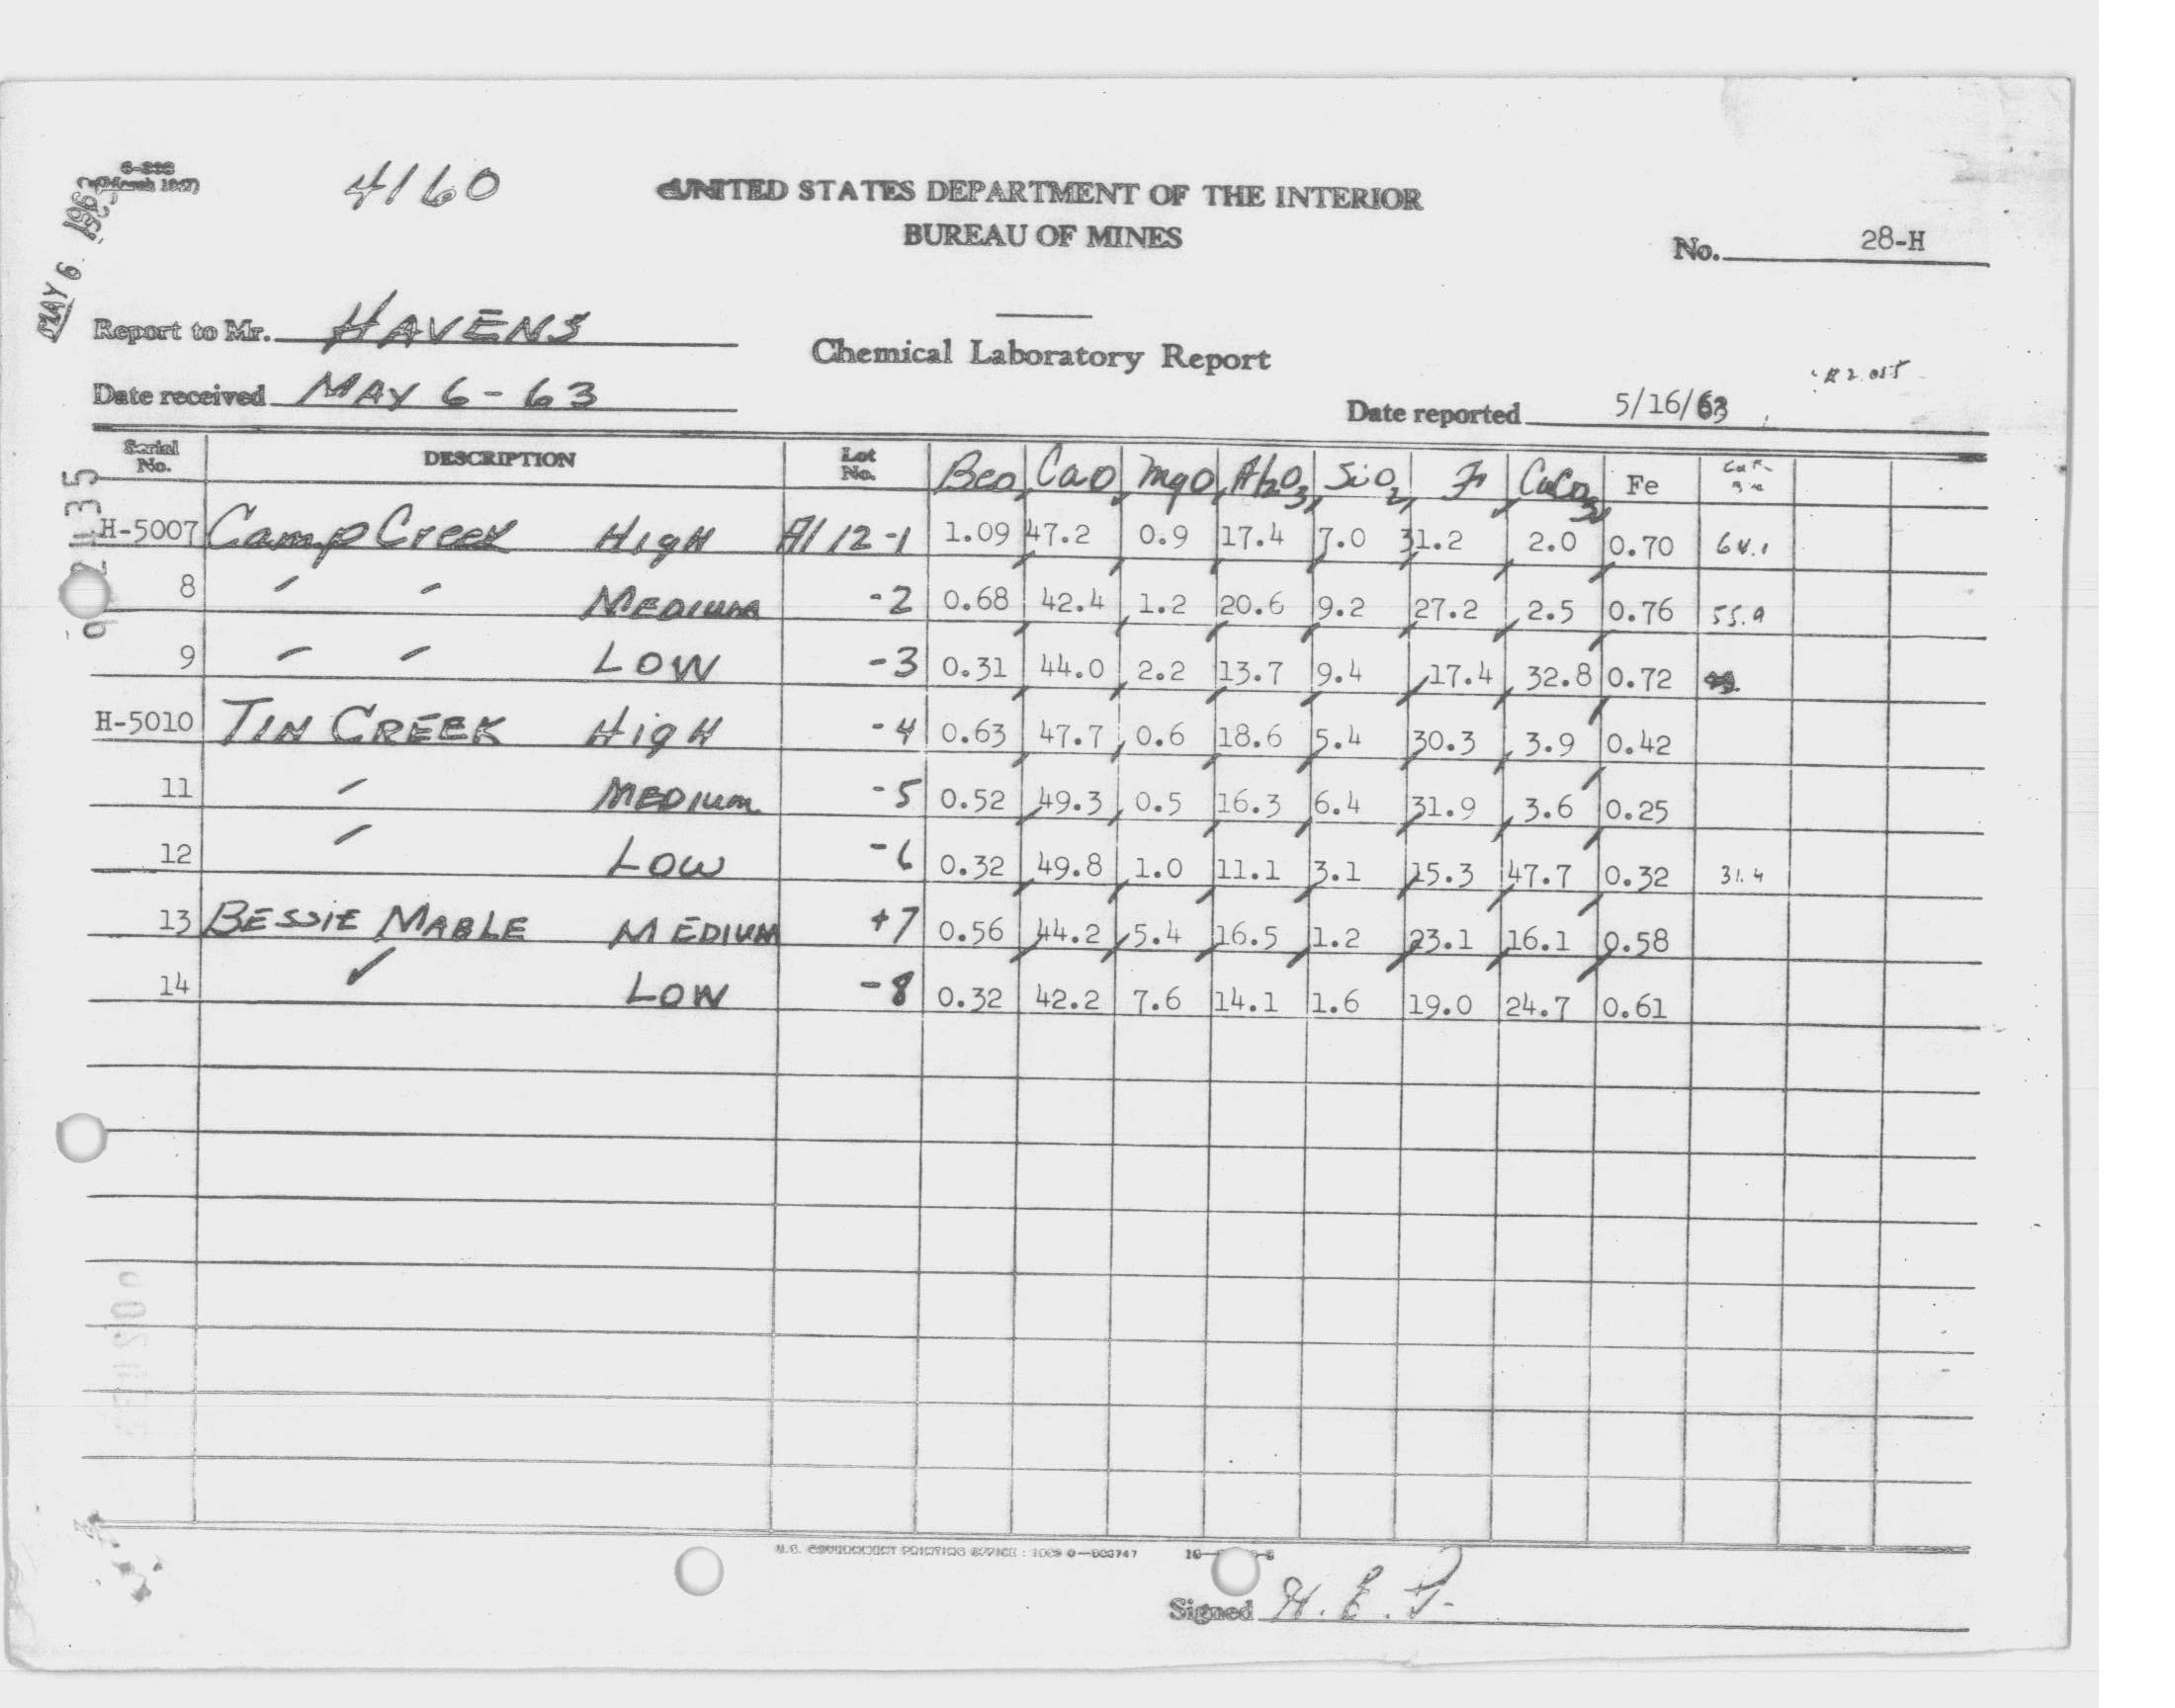 4160
UNITED STATES DEPARTMENT OF THE INTERIOR
BUREAU OF MINES
No. 28-H
MAY 6 1963
Report to Mr. HAVENS
Chemical Laboratory Report
Date received MAY 6-63
Date reported 5/16/63
Serial No. DESCRIPTION Lot No. BeO CaO MgO Al2O3 SiO2 F CaCO3 Fe
H-5007 Camp Creek High A1 12-1 1.09 47.2 0.9 17.4 7.0 31.2 2.0 0.70 64.1
8 " " MEDIUM -2 0.68 42.4 1.2 20.6 9.2 27.2 2.5 0.76 55.9
9 " " LOW -3 0.31 44.0 2.2 13.7 9.4 17.4 32.8 0.72
H-5010 TIN CREEK HigH -4 0.63 47.7 0.6 18.6 5.4 30.3 3.9 0.42
11 " MEDIUM -5 0.52 49.3 0.5 16.3 6.4 31.9 3.6 0.25
12 " LOW -6 0.32 49.8 1.0 11.1 3.1 15.3 47.7 0.32 31.4
13 BESSIE MABLE MEDIUM +7 0.56 44.2 5.4 16.5 1.2 23.1 16.1 0.58
14 " LOW -8 0.32 42.2 7.6 14.1 1.6 19.0 24.7 0.61
Signed H. E. P.